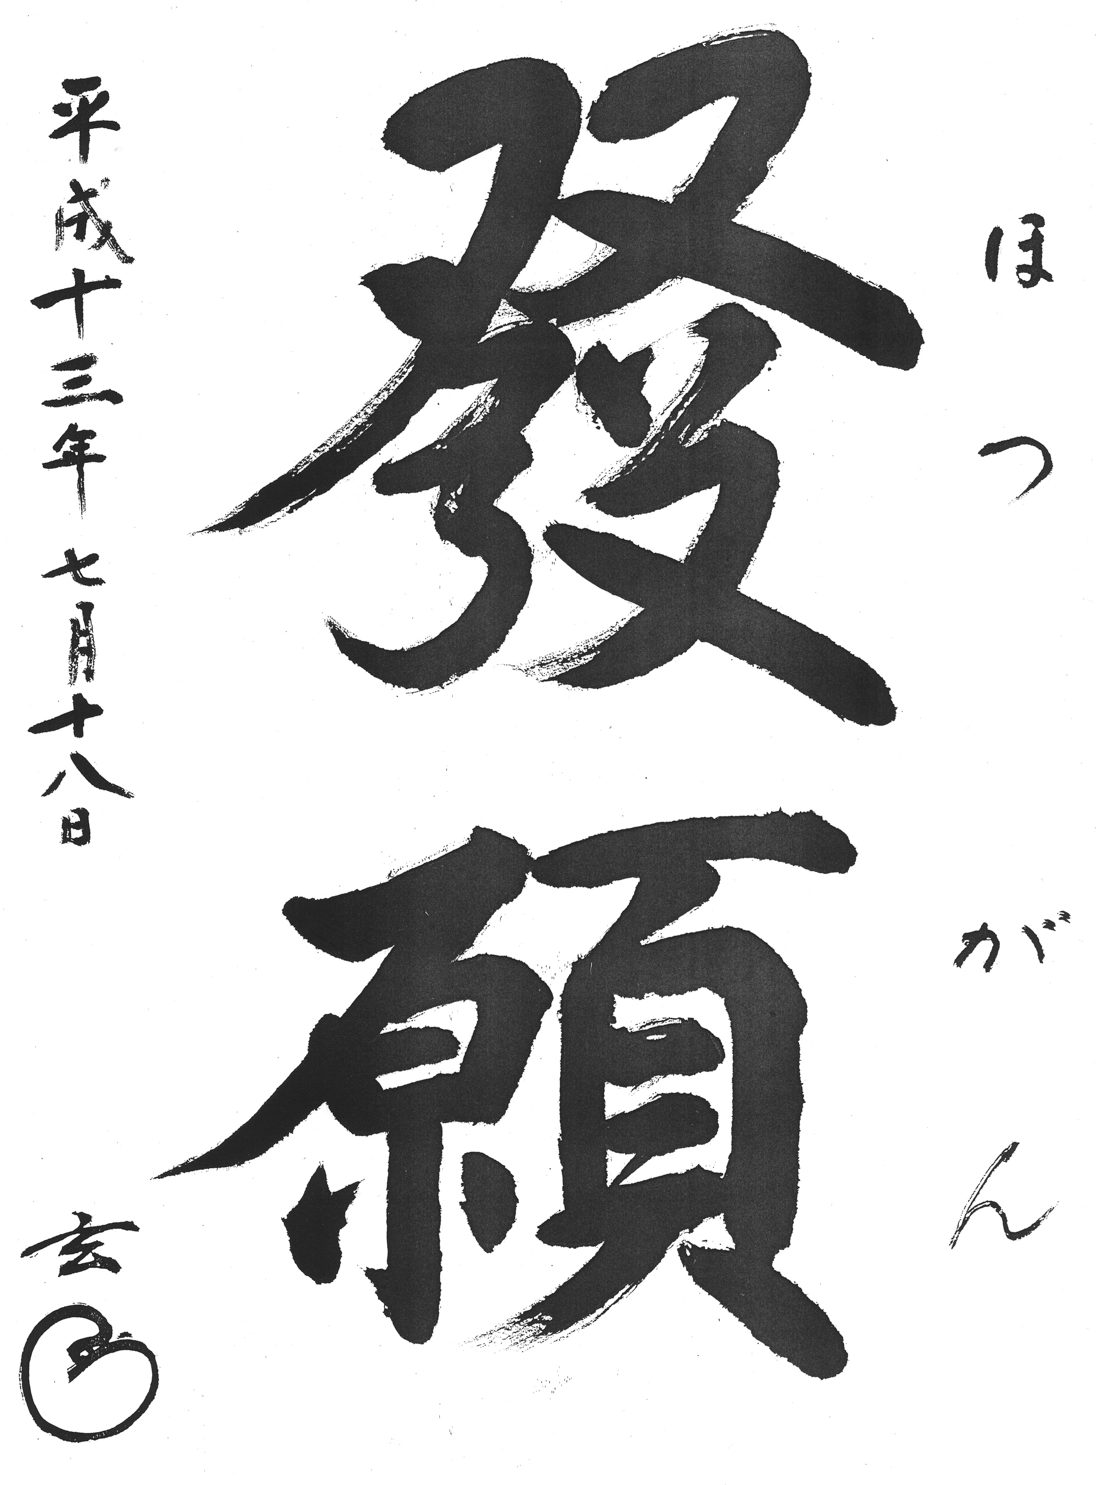 ほつがん
發願
平成十三年七月十八日
玄